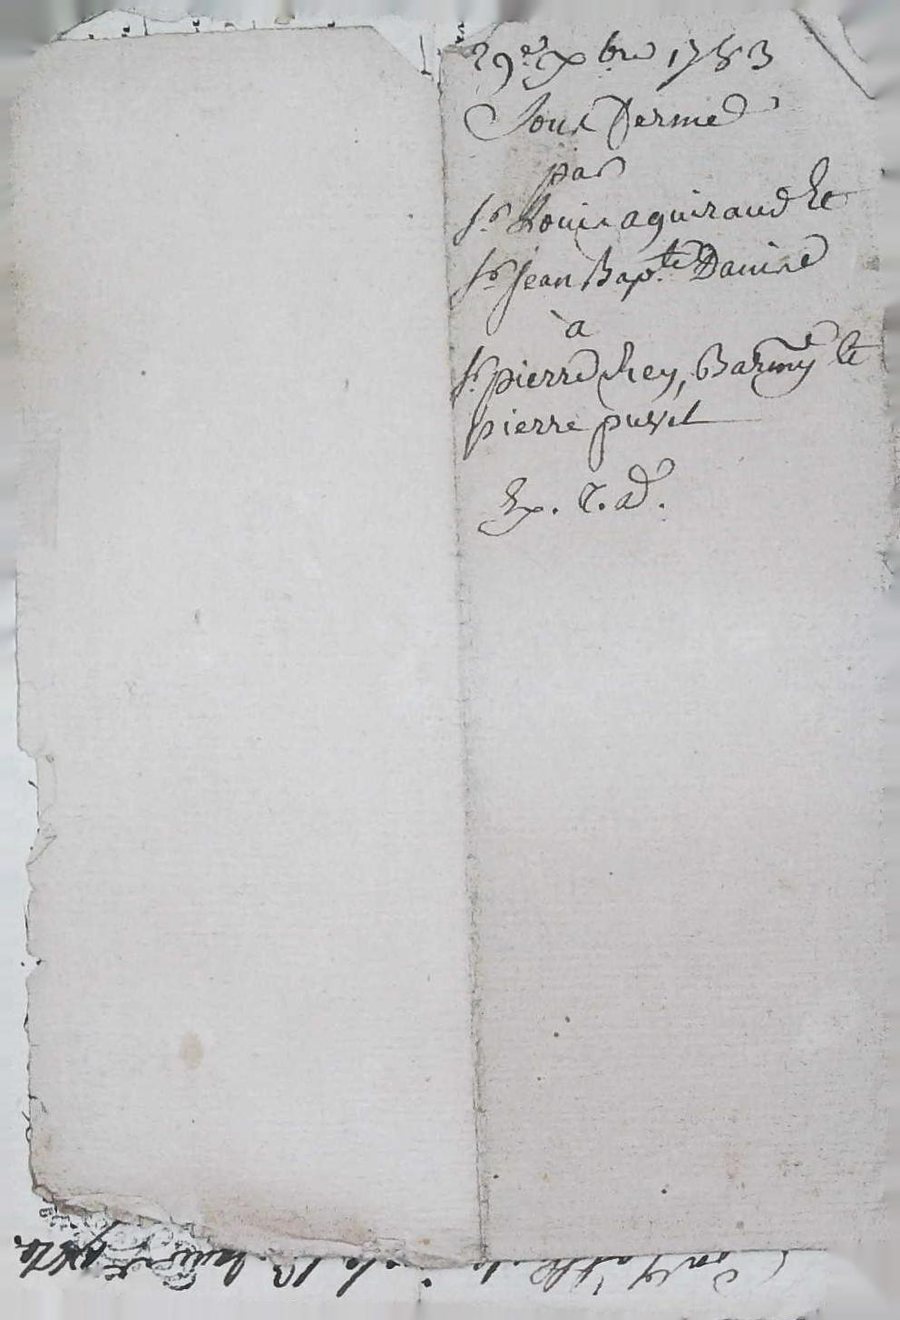 29e xbre 1783
Sous ferme
par
Sr Louis aguiraud Et
Sr jean Bapte Danise
à
Sr pierre Rey, Barmy et
pierre puvel
Ex. r. ad.